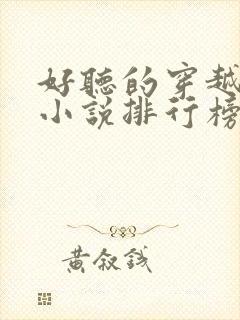 好聽的穿越
小說排行榜
黃叙錢